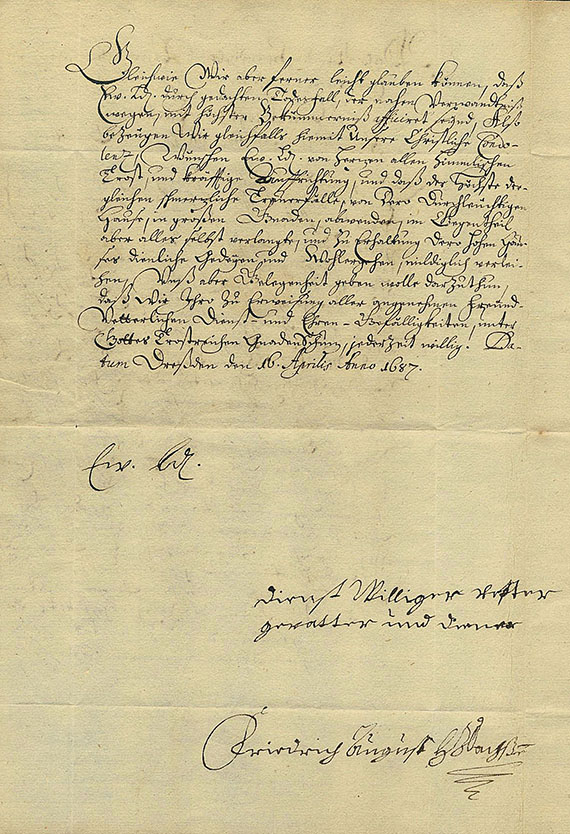 Gleichwie Wir aber ferner leicht glauben können, daß
Ew. Ld. durch gedachten Todesfall, der nahen Verwandtniß
wegen, mit höchster Bekümmerniß afficiret seynd, Alß
bezeugen Wir gleichfalls hiemit Unsere Christliche Condo-
lenz, Wünschen Ew. Ld. von Herzen allen Himmlischen
Trost, und kräfftige Auffrichtung, und daß der Höchste der-
gleichen schmerzliche Trauerfälle, von Dero Durchleuchtigen
Hause, in großen Gnaden, abwenden, im Gegentheil
aber alles selbst verlangte, und zu Erhaltung Dero hohen Hau-
ses dienliche Gedeyen und Wohlergehen, mildiglich verlei-
hen, Unß aber Gelegenheit geben wolle darzuthun,
daß Wir Ihro zu Erweisung aller angenehmen Freund-
Vetterlichen Dienst- und Ehren-Gefälligkeiten, unter
Gottes Trostreichen Gnaden Schuz, jederzeit willig. Da-
tum Dreßden den 16. Aprilis Anno 1687.
Ew. Ld.
dienst Williger vetter
gevatter und diener
Friedrich August HZSachßen